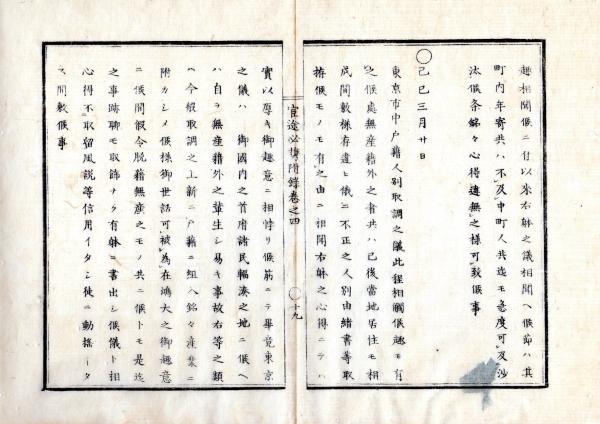 趣相聞候ニ付以来右躰之儀相聞ヘ候節ハ其
町内年寄共ハ不及申町人共迄モ急度可及沙
汰候条銘々心得違無之様可致候事
○己巳三月廿日
東京市中戸籍人別取調之儀此程相觸候趣モ有
之候處無産籍外之者共ハ已後當地居住モ相
成間敷様存違ヒ俄ニ不正之人別由緒書等取
拵候モノモ有之由ニ相聞右躰之心得ニテハ
官途必携附録巻之四
○十九
實以厚キ御趣意ニ相悖リ候筋ニテ畢竟東京
之儀ハ御國内之首府諸民輻湊之地ニ候ヘ
ハ自ラ無産籍外之輩生シ易キ事故右等之類
ヘ今般取調之上新ニ戸籍ニ組入銘々産業ニ
附カシメ候様御世話可被為在鴻大之御趣意
ニ候間假令脱籍無産之モノ共ニ候トモ是迄
之事跡聊モ取飾ナク有躰ニ書出シ候儀ト相
心得不取留風説等信用イタシ徒ニ動揺イタ
ス間敷候事